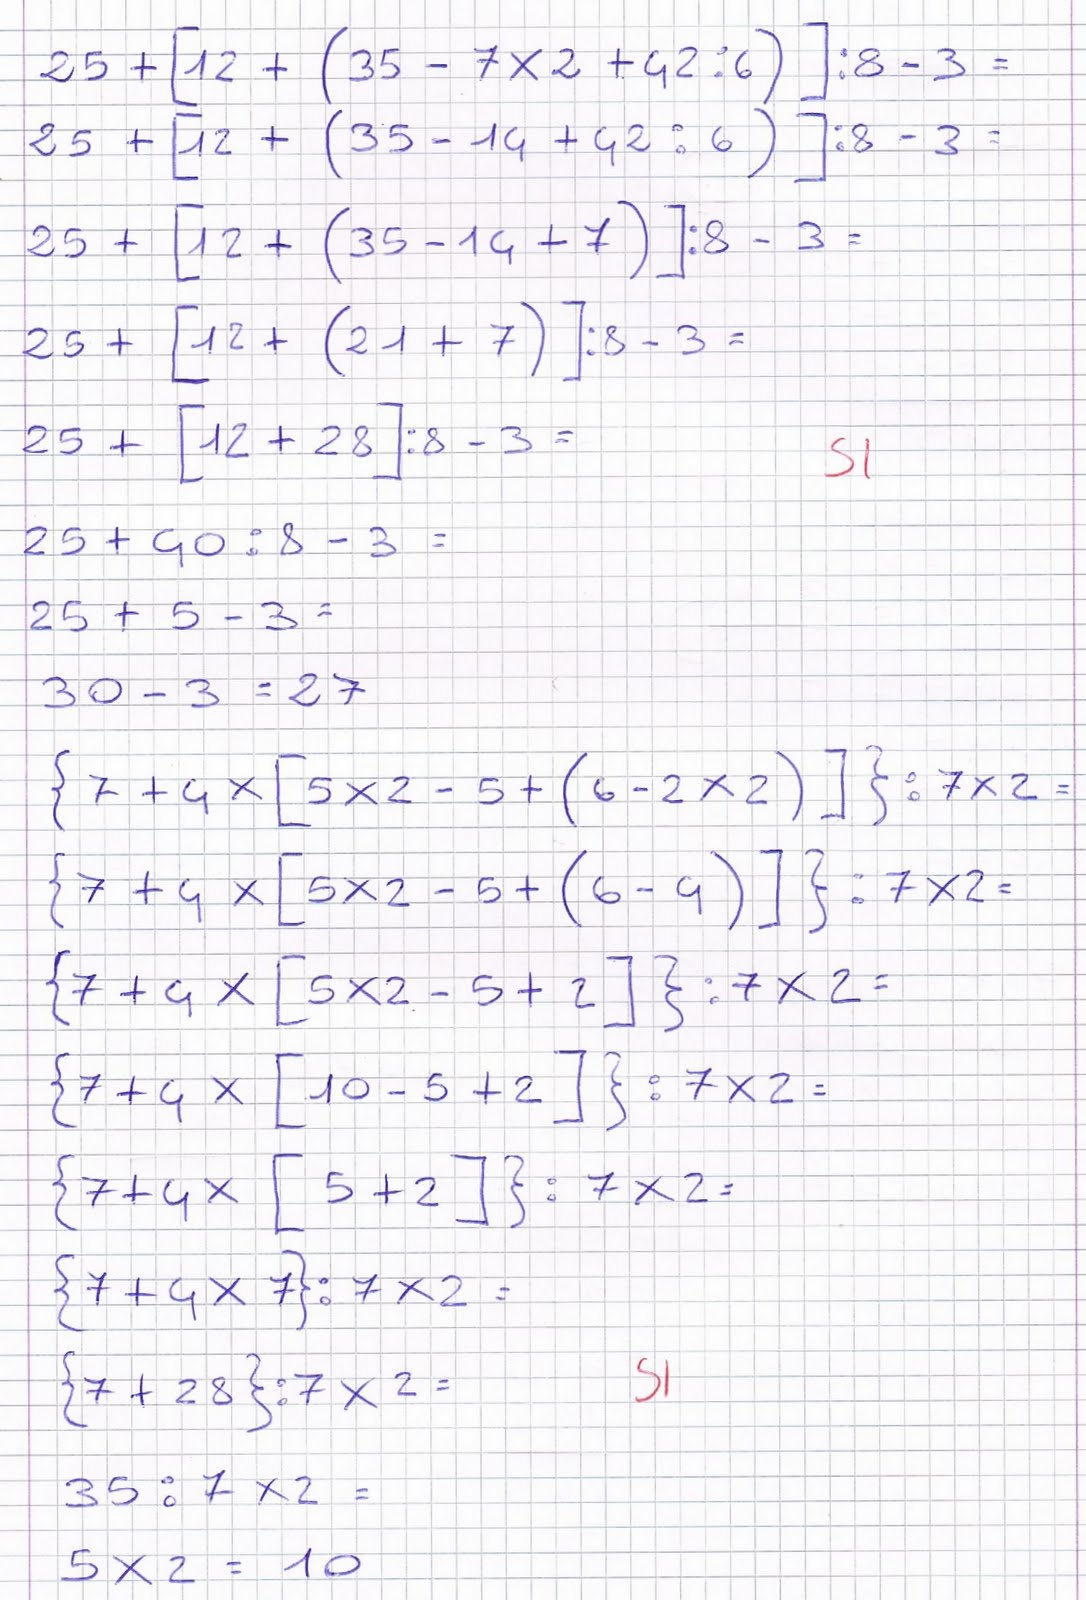 25 + [12 + (35 - 7 x 2 + 42 : 6)] : 8 - 3 =
25 + [12 + (35 - 14 + 42 : 6)] : 8 - 3 =
25 + [12 + (35 - 14 + 7)] : 8 - 3 =
25 + [12 + (21 + 7)] : 8 - 3 =
25 + [12 + 28] : 8 - 3 =
SI
25 + 40 : 8 - 3 =
25 + 5 - 3 =
30 - 3 = 27
{7 + 4 x [5 x 2 - 5 + (6 - 2 x 2)]} : 7 x 2 =
{7 + 4 x [5 x 2 - 5 + (6 - 4)]} : 7 x 2 =
{7 + 4 x [5 x 2 - 5 + 2]} : 7 x 2 =
{7 + 4 x [10 - 5 + 2]} : 7 x 2 =
{7 + 4 x [5 + 2]} : 7 x 2 =
{7 + 4 x 7} : 7 x 2 =
{7 + 28} : 7 x 2 =
SI
35 : 7 x 2 =
5 x 2 = 10